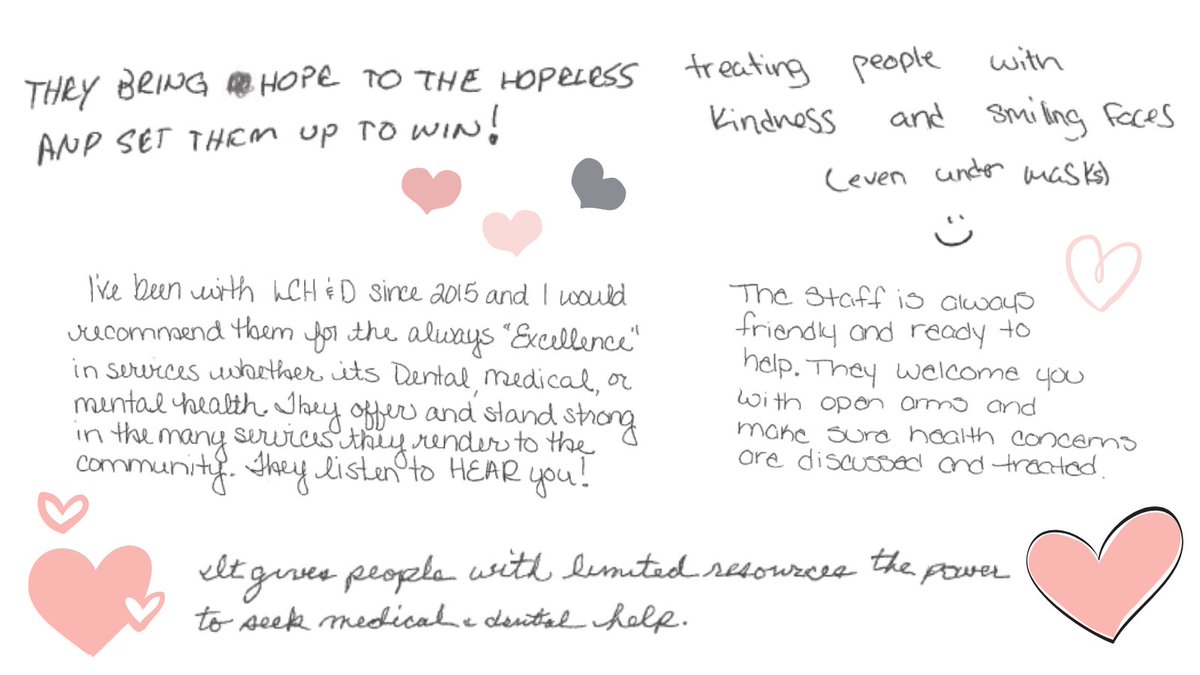 THEY BRING HOPE TO THE HOPELESS
AND SET THEM UP TO WIN!
treating people with
kindness and smiling faces
(even under masks)
I've been with LCH&D since 2015 and I would
recommend them for the always "Excellence"
in services whether its Dental, medical, or
mental health. They offer and stand strong
in the many services they render to the
community. They listen to HEAR you!
The staff is always
friendly and ready to
help. They welcome you
with open arms and
make sure health concerns
are discussed and treated.
It gives people with limited resources the power
to seek medical & dental help.